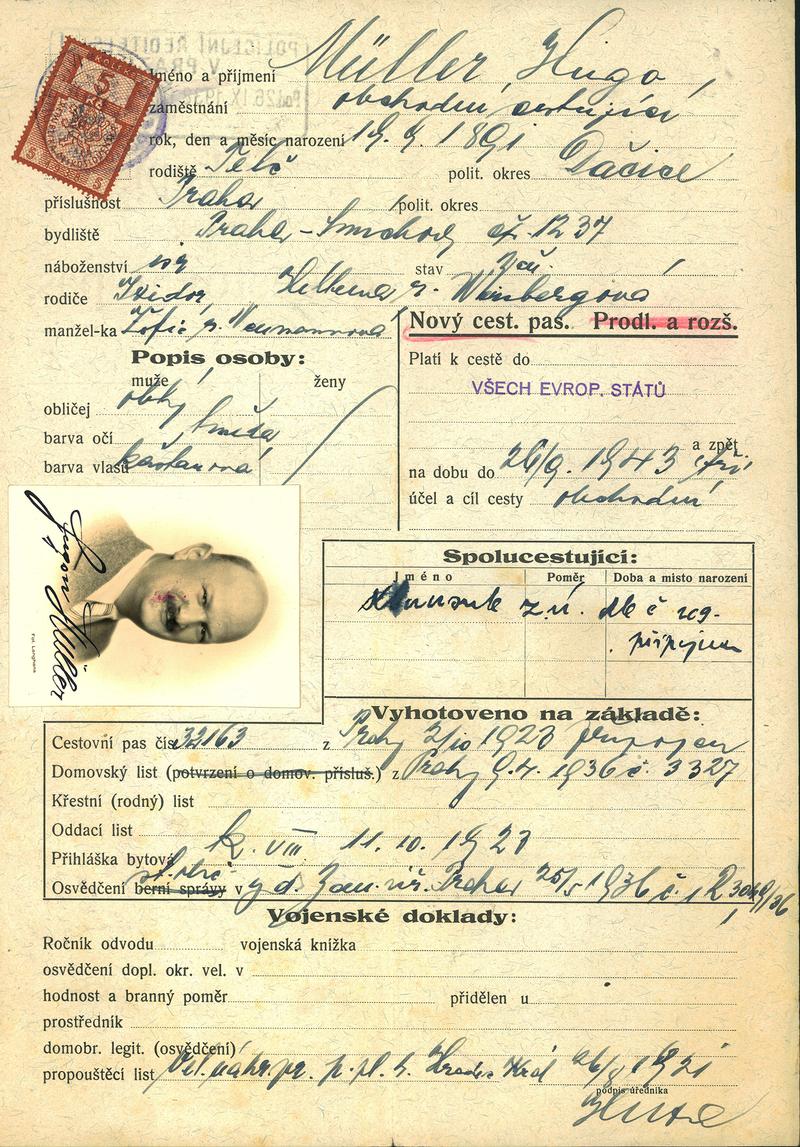 POLICEJNÍ ŘEDITELSTVÍ
V PRAZE
26.IX.
5
Jméno a příjmení Müller, Hugo,
zaměstnání obchodní cestující
rok, den a měsíc narození 1891
rodiště Telč polit. okres Dačice
příslušnost Praha polit. okres
bydliště Praha-Smíchov, čp. 1237
náboženství stav žen.
rodiče Isidor, Helena r. Weinbergová
manžel-ka Žofie r. Neumannová
Nový cest. pas. Prodl. a rozš.
Popis osoby:
muže ženy
obličej oblý
barva očí hnědá
barva vlasů kaštanová
Platí k cestě do
VŠECH EVROP. STÁTŮ
a zpět
na dobu do 26/9. 1943
účel a cíl cesty obchodní
Hugo Müller
Fot. Langhans
Spolucestující:
Jméno Poměr Doba a místo narození
připojen
Vyhotoveno na základě:
Cestovní pas čís. 32163 z Prahy 2/10 1928 připojen
Domovský list (potvrzení o domov. přísluš.) z Prahy 9.4. 1936 č. 3327
Křestní (rodný) list
Oddací list
Přihláška bytová k. VIII 11. 10. 1928
Osvědčení berní správy v Praha 25/5 1936 č.
Vojenské doklady:
Ročník odvodu vojenská knížka
osvědčení dopl. okr. vel. v
hodnost a branný poměr přidělen u
prostředník
domobr. legit. (osvědčení)
propouštěcí list Vel. náhr. pr. p. pl. Hradec Král 1921
podpis úředníka